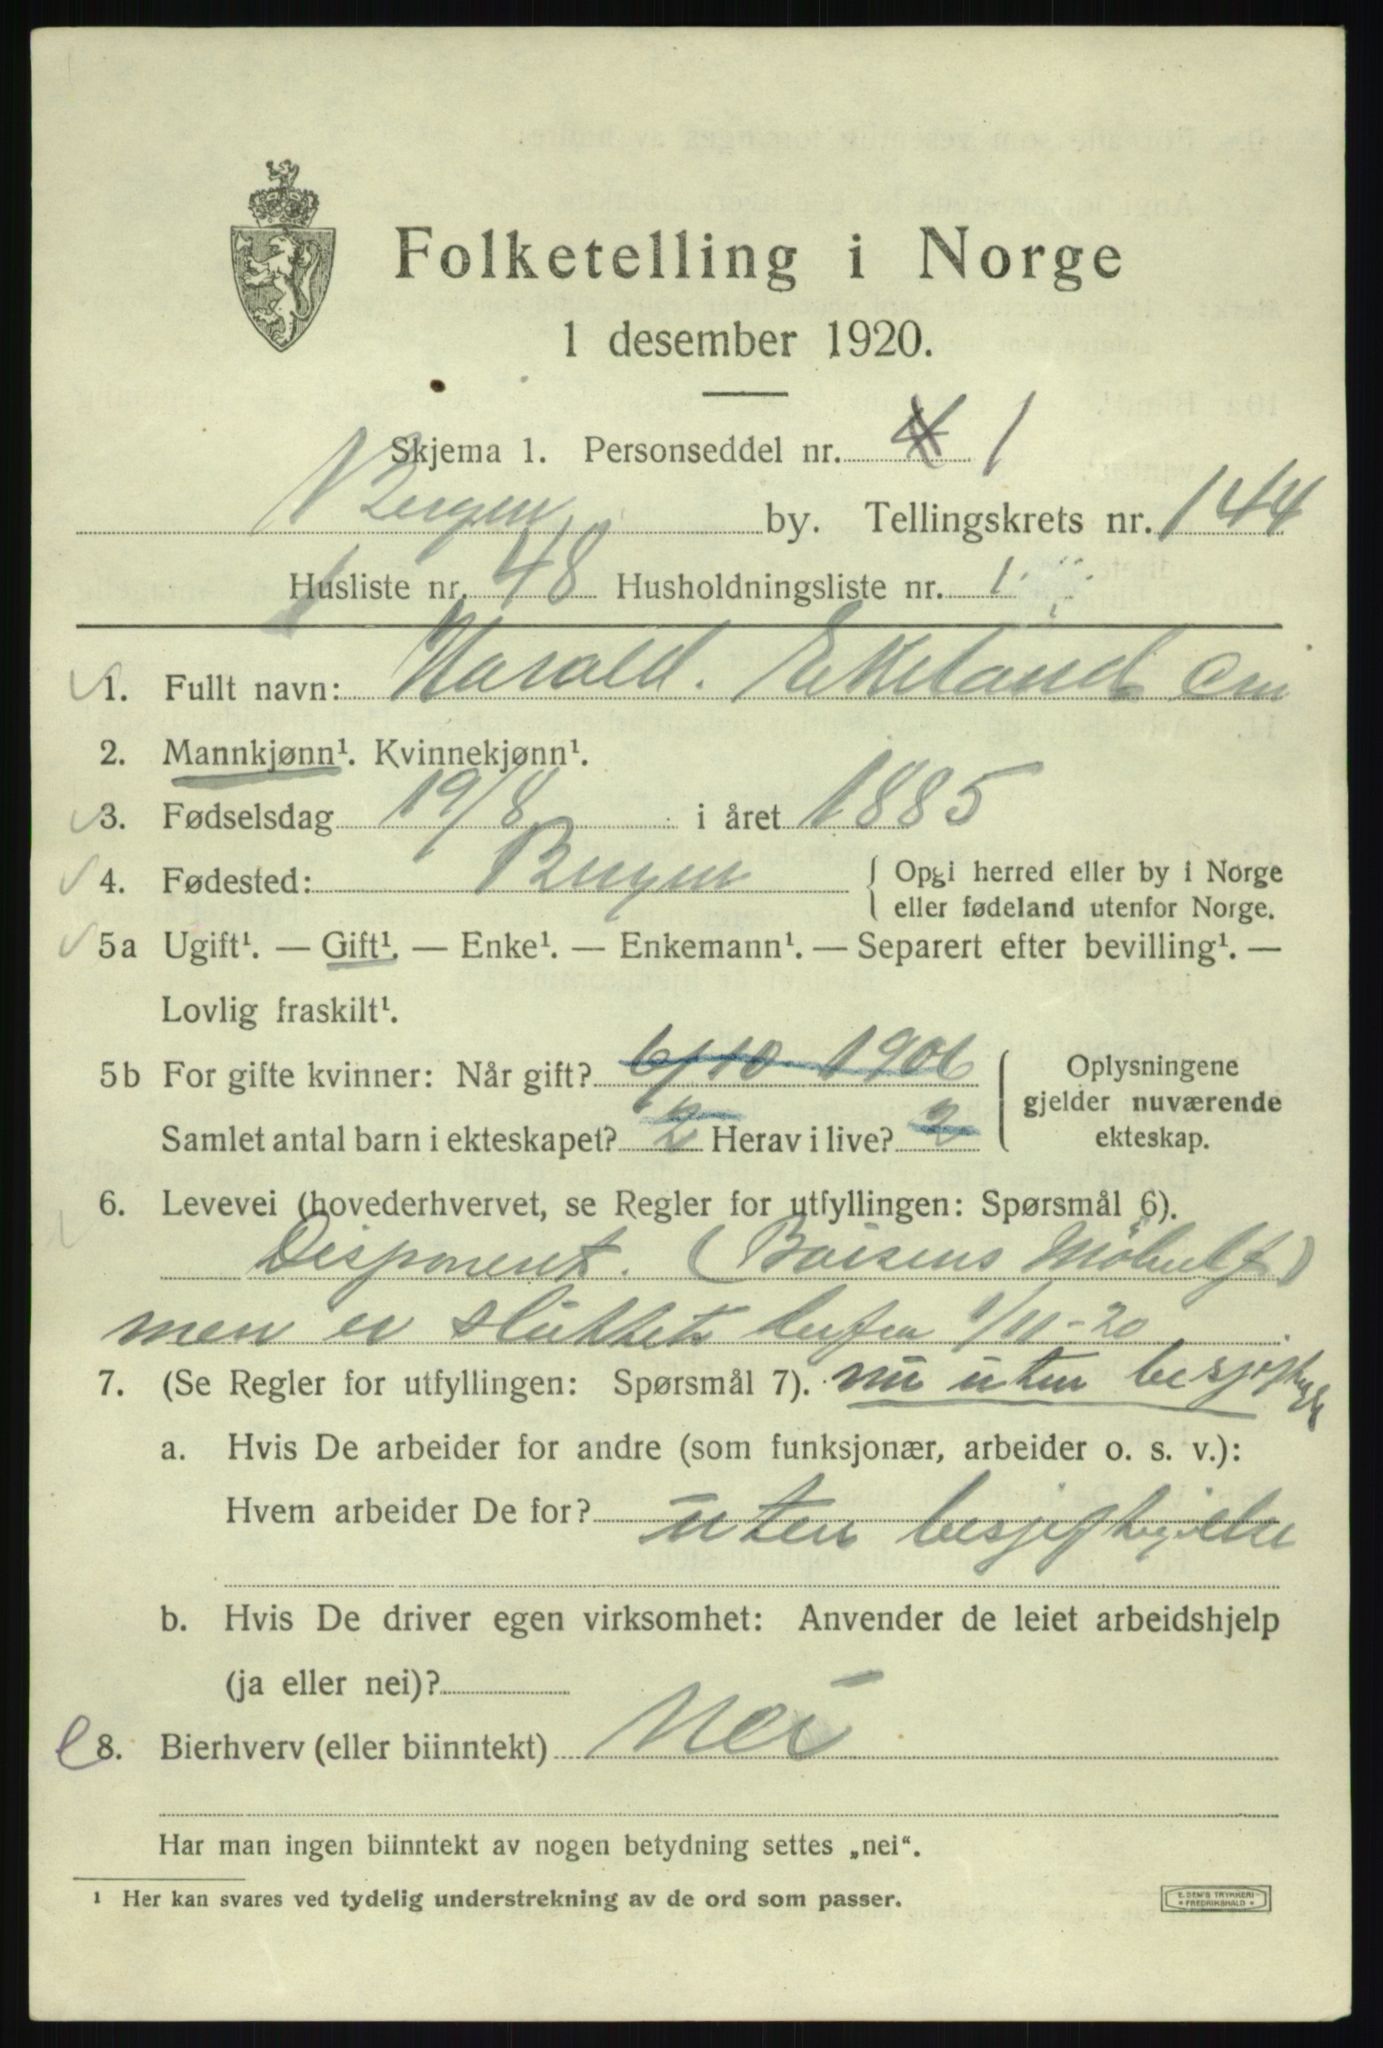 Folketelling i Norge
1 desember 1920.
Skjema 1. Personseddel nr. 4 1
Bergen by. Tellingskrets nr. 144
Husliste nr. 48 Husholdningsliste nr. 1
1. Fullt navn: Harald. Ekeland
2. Mannkjønn¹. Kvinnekjønn¹.
3. Fødselsdag 19/8 i året 1885
4. Fødested: Bergen { Opgi herred eller by i Norge
eller fødeland utenfor Norge.
5a Ugift¹. — Gift¹. — Enke¹. — Enkemann¹. — Separert efter bevilling¹. —
Lovlig fraskilt¹.
5b For gifte kvinner: Når gift? 6/10 1906 { Oplysningene
gjelder nuværende
Samlet antal barn i ekteskapet? 2 Herav i live? 2
ekteskap.
6. Levevei (hovederhvervet, se Regler for utfyllingen: Spørsmål 6).
Disponent. (Boisens Møbelf)
men er sluttet herfra 1/11-20
7. (Se Regler for utfyllingen: Spørsmål 7). nu uten
a. Hvis De arbeider for andre (som funksjonær, arbeider o. s. v.):
Hvem arbeider De for? uten
b. Hvis De driver egen virksomhet: Anvender de leiet arbeidshjelp
(ja eller nei)?
8. Bierhverv (eller biinntekt) Nei
Har man ingen biinntekt av nogen betydning settes „nei“.
¹ Her kan svares ved tydelig understrekning av de ord som passer.
E. SEM'S TRYKKERI
FREDRIKSHALD